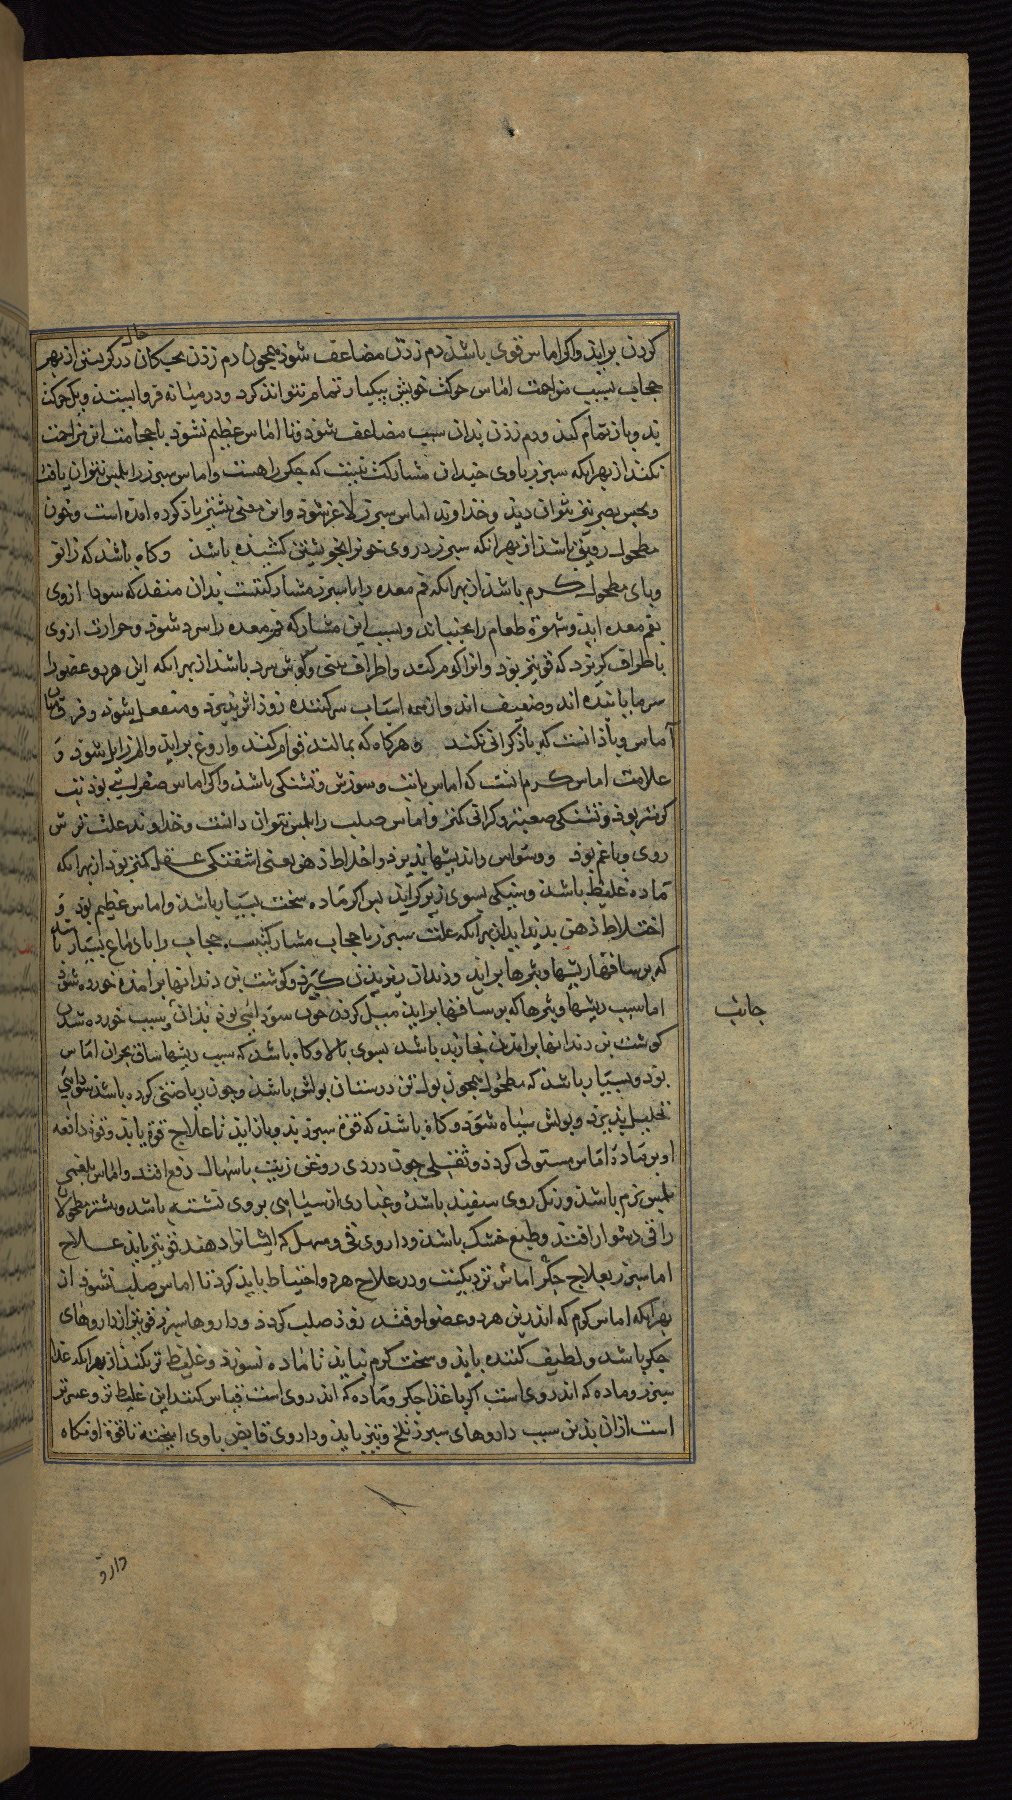 حال
کردن براید واکر اماس قوی باشد دم زدن مضاعف شوذ همجون دم زدن کودکان در کریستن از بهر
حجاب بسبب مزاحمت اماس حرکت خویش بیکبار تمام نتواند کرد ودر میانه فرو ایستد ودیکر حرکت
کند وباز تمام کند ودم زدن بدان سبب مضاعف شود وتا اماس عظیم نشود با حجاب این مزاحمت
نکند از بهر آنکه سبرز را باوی جندان مشارکت نیست که جکر را هست واماس سبرز را بلمس بتوان یافت
وبحس بصر نیز بتوان دید وخداوند اماس سبرز لاغر شود واین معنی بیشتر یاد کرده امده است وخون
مطحول رقیق باشد از بهر آنکه سبرز دردی خون را بخویشتن کشیده باشد وکاه باشد که زانو
وبای مطحول کرم باشد از بهر آنکه فم معده را با سبرز مشارکتست بدان منفذ که سودا ازوی
بفم معده اید وشهوة طعام را بجنباند وبسبب این مشارکه فم معده را سرد شود وحرارت ازوی
باطراف کریزد که قوی‌تر بود وانرا کرم کند واطراف بینی وکوش سرد باشد از بهر آنکه این هر دو عضو را
سرما یابنده اند وضعیف اند واز همه اسباب سرد کننده زود اثر بذیرد ومنفعل شود وفرق میان
آماس وباد آنست که باد کرانی نکند وهرکاه که بمالند قراقر کند واروغ براید والم زایل شود و
علامت اماس کرم انست که اماس با تب وسوزش وتشنکی باشد واکر اماس صفرایی بود تب
کرمتر بود وتشنکی صعبتر وکرانی کمتر واماس صلب را بلمس بتوان دانست وخداوند علت ترش
روی وباغم بود ووسواس واندیشها بدیرد واختلاط ذهن یعنی اشفتکی عقل کمتر بود از بهر آنکه
ماده غلیظ باشد وبنیکی بسوی زبر کراید بس اکر ماده سخت بسیار باشد واماس عظیم بود و
اختلاط ذهن بدید اید از بهر آنکه علت سبرز با حجاب مشارکتست وحجاب را با دماغ بسیار باشد
که بر ساقها ریشها وبثرها براید ودندان وبوی دهن کیرد وکوشت بن دندانها برامده خورده شود
اما سبب ریشها وبثرها که بر ساقها براید میل کردن خون سودایی بود بدان وسبب خورده شدن
جانب
کوشت بن دندانها برامدن بخار بد باشد بسوی بالا وکاه باشد که سبب ریشها ساق بحران اماس
بود وبسیار باشد که مطحول همجون بول تن درستان بولش باشد وجون ریاضتی کرده باشد سودایی
تحلیل بذیرد وبولش سیاه شود وکاه باشد که قوة سبرز بدید باز اید تا علاج قوة یابد وقوة دافعه
او بر مادة اماس مستولی کردد وثفلی جون دردی روغن زیت باسهال دفع افتد واماس بلغمی
بلمس نرم باشد ورنک روی سفید باشد وغباری از سیاهی بروی نشسته باشد وبیشتر مطحولان
را قی دشوار افتد وطبع خشک باشد وداروی قی ومسهل که ایشانرا دهند قوی‌تر باید علاج
اماس سبرز بعلاج جکر اماس نزدیکست ودر علاج هر دو احتیاط باید کرد تا اماس صلب نشود از
بهر آنکه اماس کرم که اندرین هر دو عضو اوفتد زود صلب کردد وداروها سبرز قوی‌تر از داروهای
جکر باشد ولطیف کننده باید وسخت کرم نباید تا ماده نسوزد وغلیظ تر نکند از بهر آنکه غذا
سبرز وماده که اندر وی است کر با غذا جکر وماده که اندر وی است قیاس کنند این غلیظ تر وعسرتر
است از ان بدین سبب داروهای سبرز تلخ وتیز باید وداروی قابض باوی امیخته تا قوة او نکاه
دارد